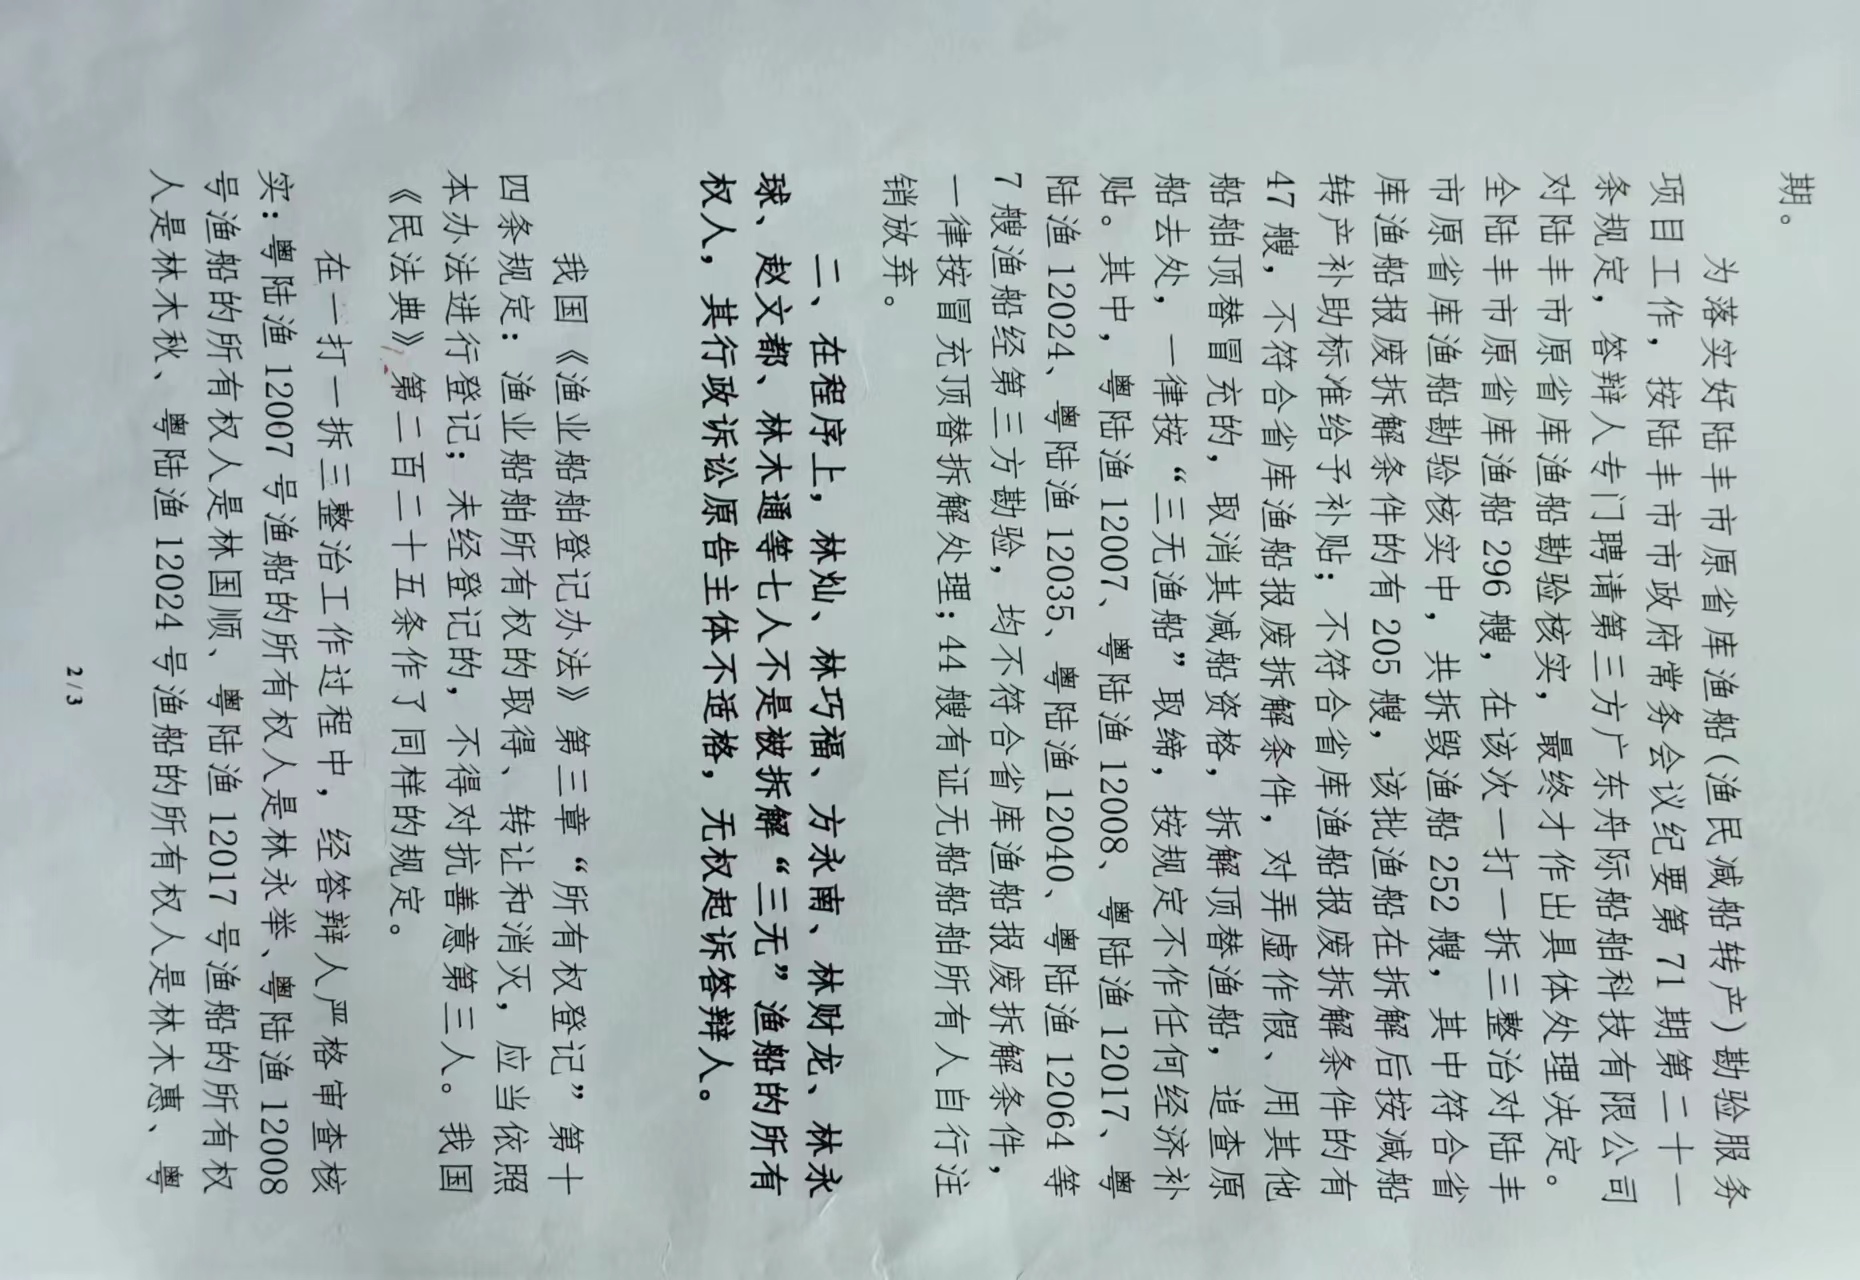 期。
为落实好陆丰市原省库渔船(渔民减船转产)勘验服务
项目工作，按陆丰市市政府常务会议纪要第 71 期第二十一
条规定，答辩人专门聘请第三方广东舟际船舶科技有限公司
对陆丰市原省库渔船勘验核实，最终才作出具体处理决定。
全陆丰市原省库渔船 296 艘，在该次一打一拆三整治对陆丰
市原省库渔船勘验核实中，共拆毁渔船 252 艘，其中符合省
库渔船报废拆解条件的有 205 艘，该批渔船在拆解后按减船
转产补助标准给予补贴；不符合省库渔船报废拆解条件的有
47 艘，不符合省库渔船报废拆解条件，对弄虚作假、用其他
船舶顶替冒充的，取消其减船资格，拆解顶替渔船，追查原
船去处，一律按“三无渔船”取缔，按规定不作任何经济补
贴。其中，粤陆渔 12007、粤陆渔 12008、粤陆渔 12017、粤
陆渔 12024、粤陆渔 12035、粤陆渔 12040、粤陆渔 12064 等
7 艘渔船经第三方勘验，均不符合省库渔船报废拆解条件，
一律按冒充顶替拆解处理；44 艘有证无船船舶所有人自行注
销放弃。
二、在程序上，林灿、林巧福、方永南、林财龙、林永
球、赵文都、林木通等七人不是被拆解“三无”渔船的所有
权人，其行政诉讼原告主体不适格，无权起诉答辩人。
我国《渔业船舶登记办法》第三章“所有权登记”第十
四条规定：渔业船舶所有权的取得、转让和消灭，应当依照
本办法进行登记；未经登记的，不得对抗善意第三人。我国
《民法典》第二百二十五条作了同样的规定。
在一打一拆三整治工作过程中，经答辩人严格审查核
实：粤陆渔 12007 号渔船的所有权人是林永举、粤陆渔 12008
号渔船的所有权人是林国顺、粤陆渔 12017 号渔船的所有权
人是林木秋、粤陆渔 12024 号渔船的所有权人是林木惠、粤
2 / 3